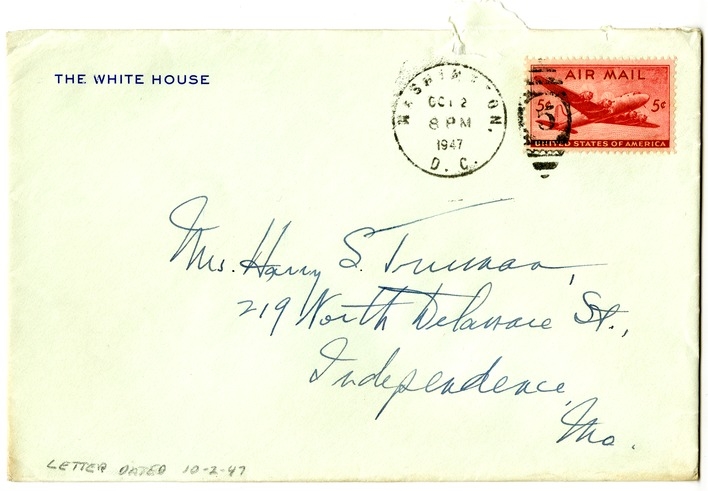 THE WHITE HOUSE
WASHINGTON,
OCT 2
8 PM
1947
D. C.
AIR MAIL
5¢ 5¢
UNITED STATES OF AMERICA
Mrs. Harry S. Truman,
219 North Delaware St.,
Independence,
Mo.
LETTER DATED 10-2-47